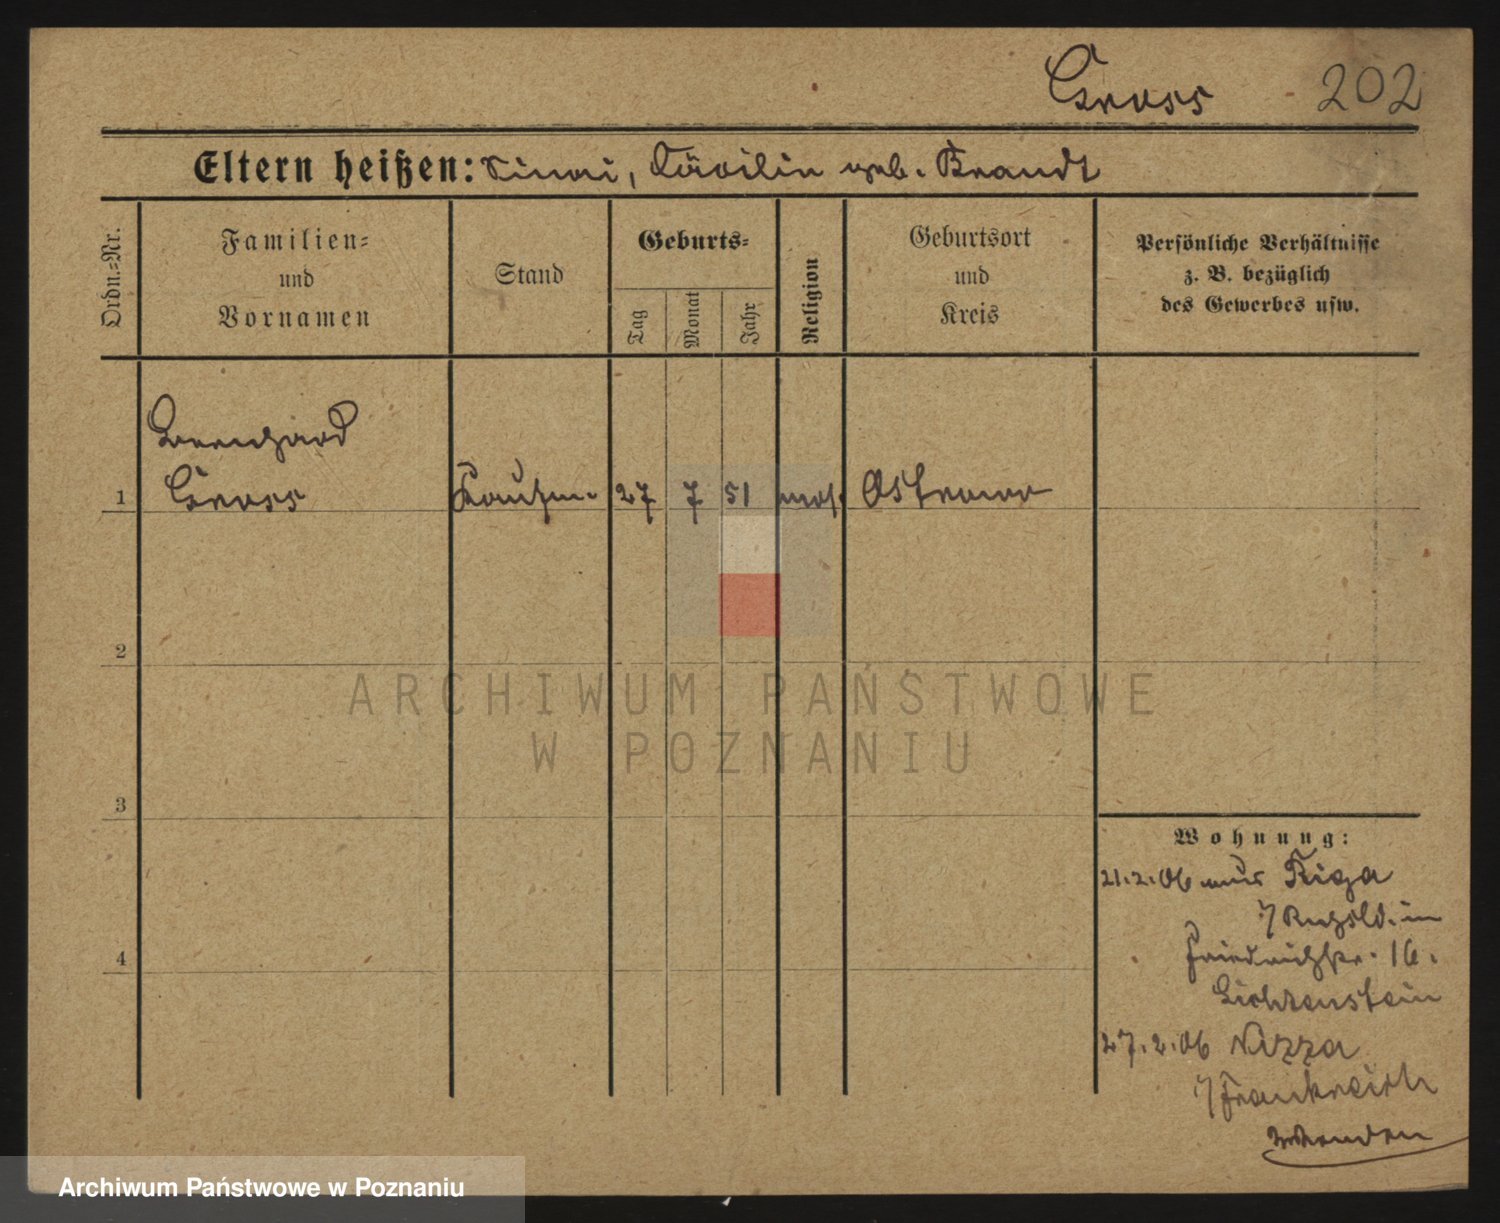 Gross 202
Eltern heißen: Simon, Cäcilie geb. Brandt
Ordn.=Nr.
Familien=
und
Vornamen
Stand
Geburts=
Tag
Monat
Jahr
Religion
Geburtsort
und
Kreis
Persönliche Verhältnisse
z. B. bezüglich
des Gewerbes usw.
Bernhard
1 Gross Kaufm. 27 7 51 mos. Ostrowo
2
3
4
Wohnung:
21.2.06 aus Riga
i/Russld. in
Friedrichstr. 16.
Lichtenstein
27.2.06 Nizza
i/Frankreich
ARCHIWUM PAŃSTWOWE
W POZNANIU
Archiwum Państwowe w Poznaniu